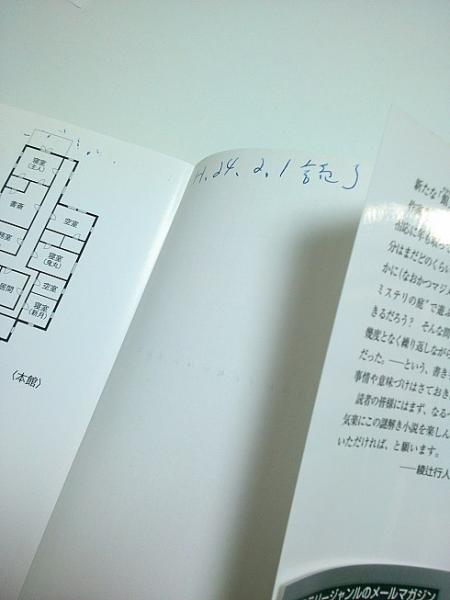 寝室
(主人)
書斎
空室
寝室
(鬼丸)
居間
空室
寝室
(新月)
〈本館〉
H.24.2.1 読了
新たな
分はまだどのくらい
かに(なおかつマジメ
ミステリの庭”で遊ぶ
きるだろう? そんな問
幾度となく繰り返しながら
だった。――という、書き
事情や意味づけはさておき
読者の皆様にはまず、なるべ
気楽にこの謎解き小説を楽しん
いただければ、と願います。
――綾辻行人
リージャンルのメールマガジン